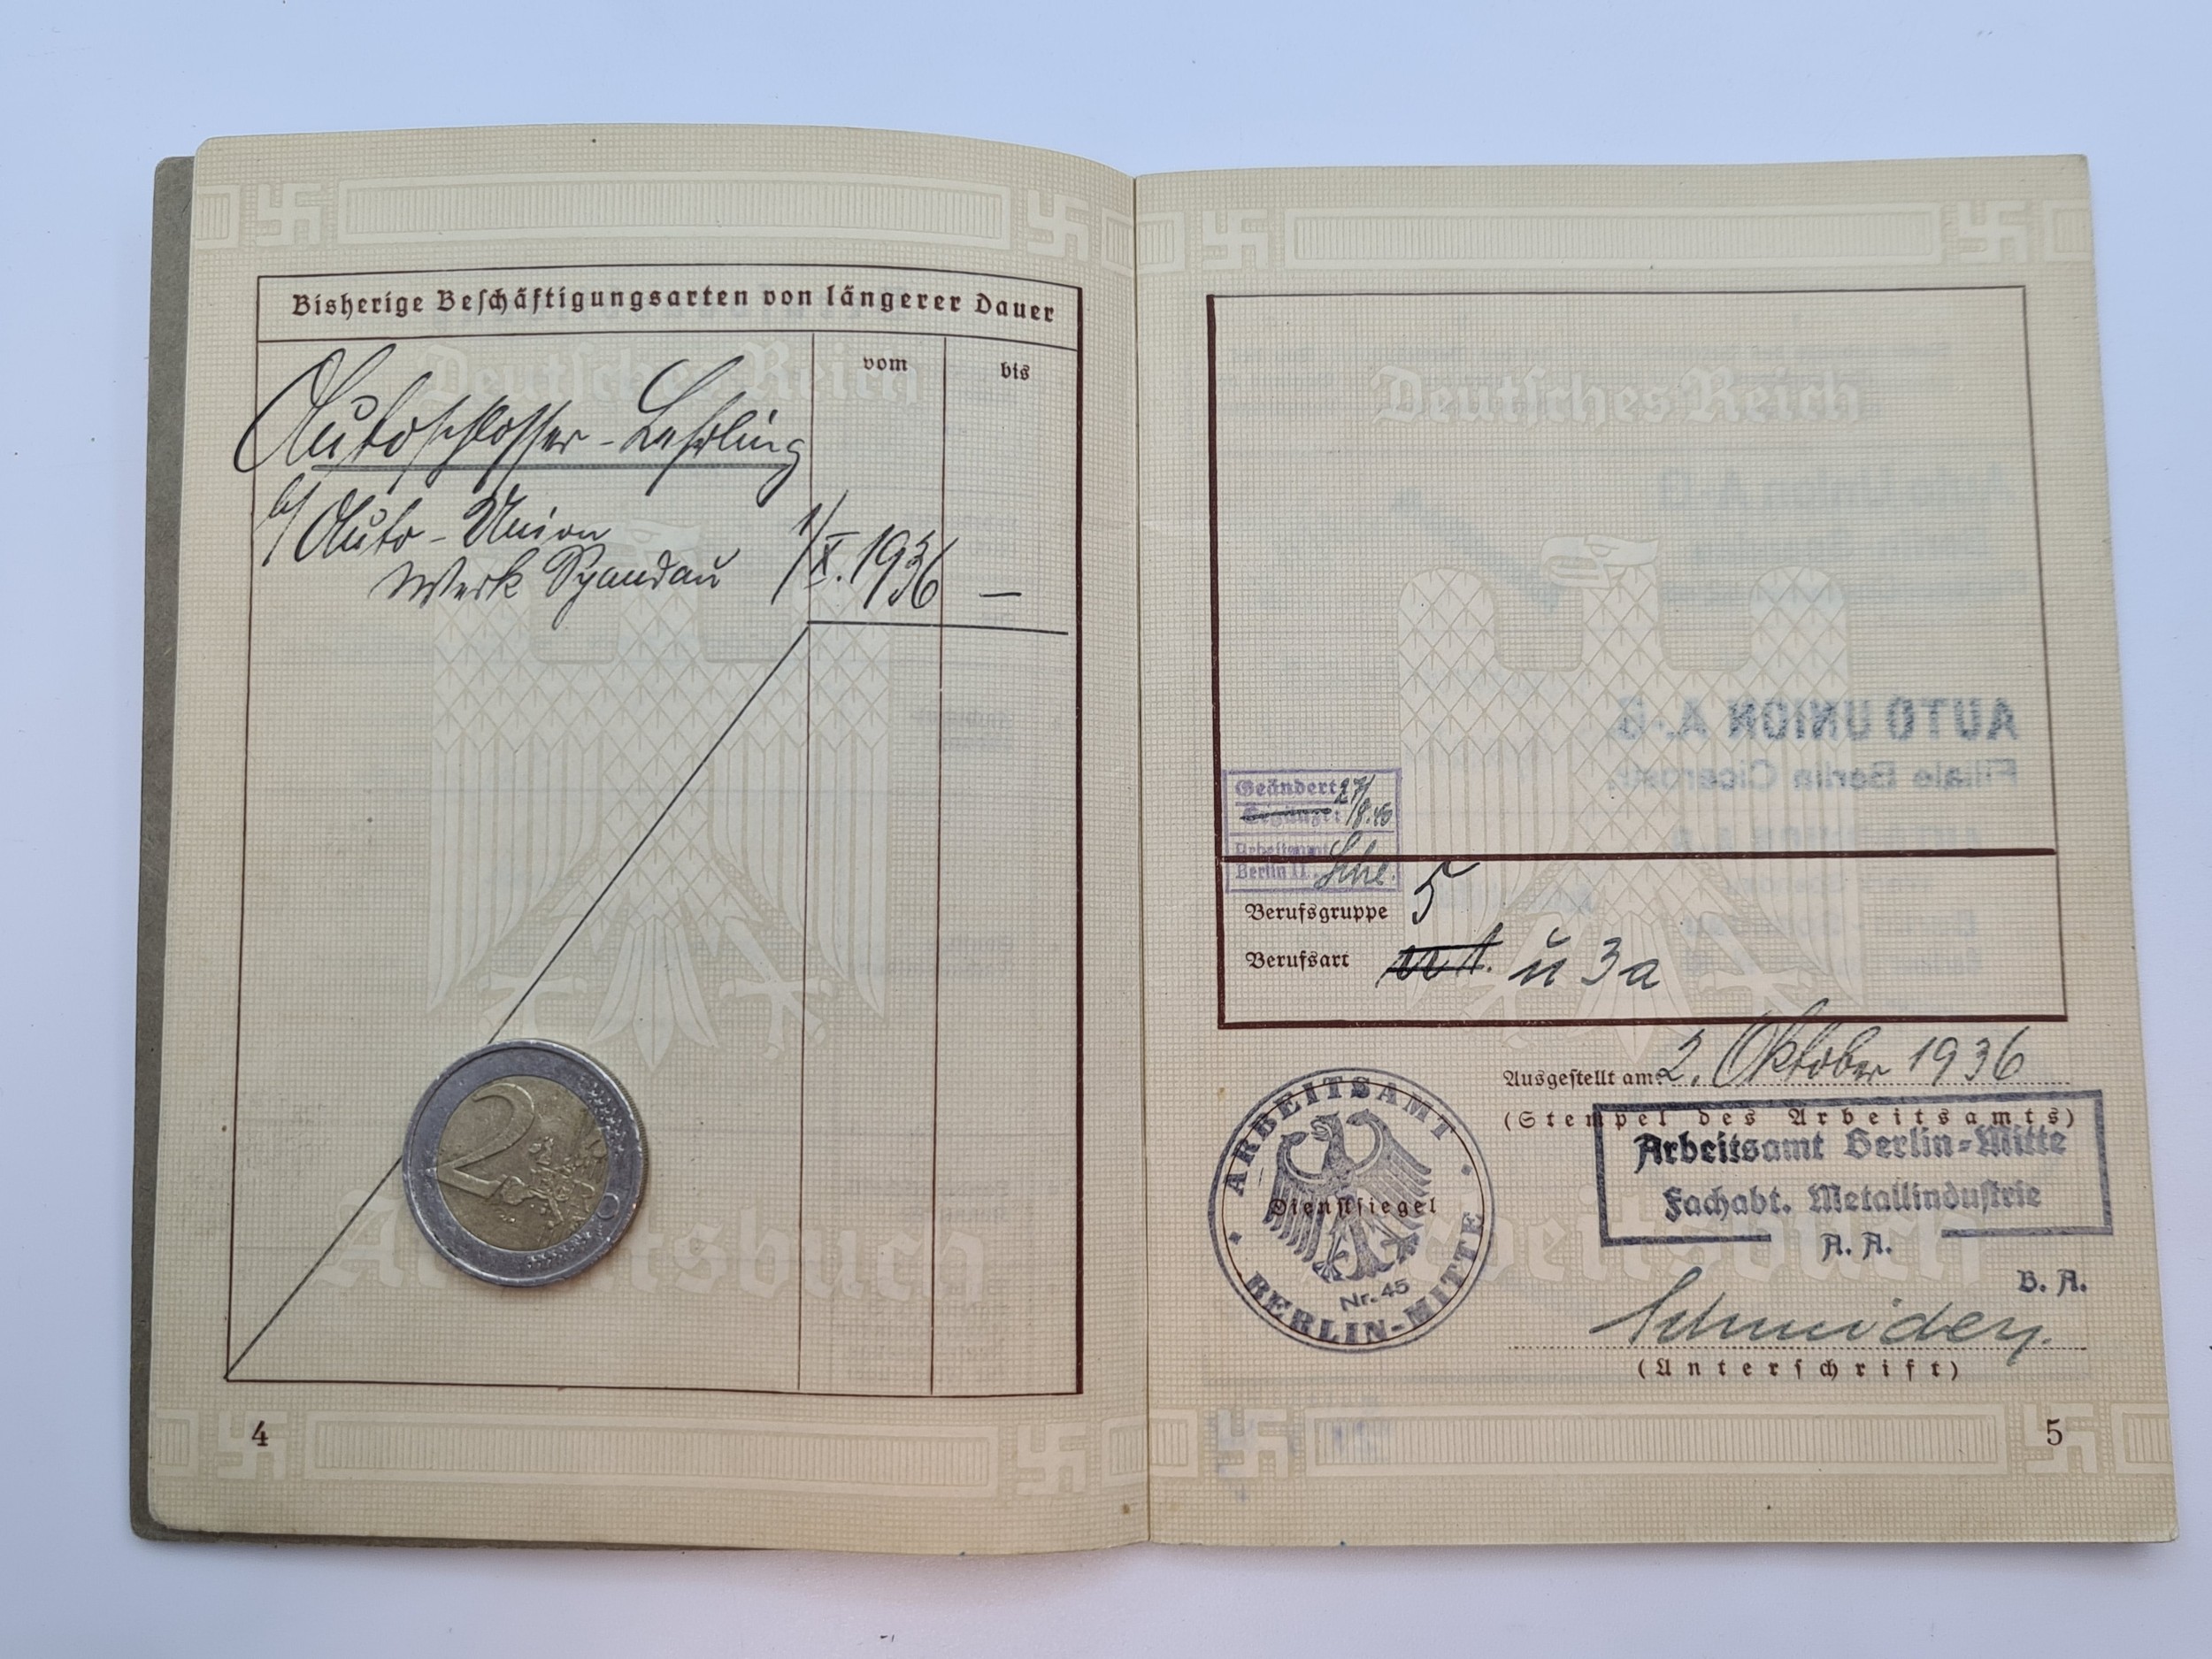 Bisherige Beschäftigungsarten von längerer Dauer
vom
bis
Deutsches Reich
Autoschlosser-Lehrling
b/ Auto-Union
Werk Spandau 1/X.1936 —
Arbeitsbuch
4
Deutsches Reich
AUTO UNION A.-G.
Filiale Berlin Cicerostr.
Geändert: 27/
Ergänzt: /8.40
Arbeitsamt
Berlin II.
Berufsgruppe 5
Berufsart u 3a
Ausgestellt am: 2. Oktober 1936
(Stempel des Arbeitsamts)
Arbeitsamt Berlin-Mitte
Fachabt. Metallindustrie
A. A.
B. A.
ARBEITSAMT
Dienstsiegel
Nr. 45
BERLIN-MITTE
Arbeitsbuch
(Unterschrift)
5
2